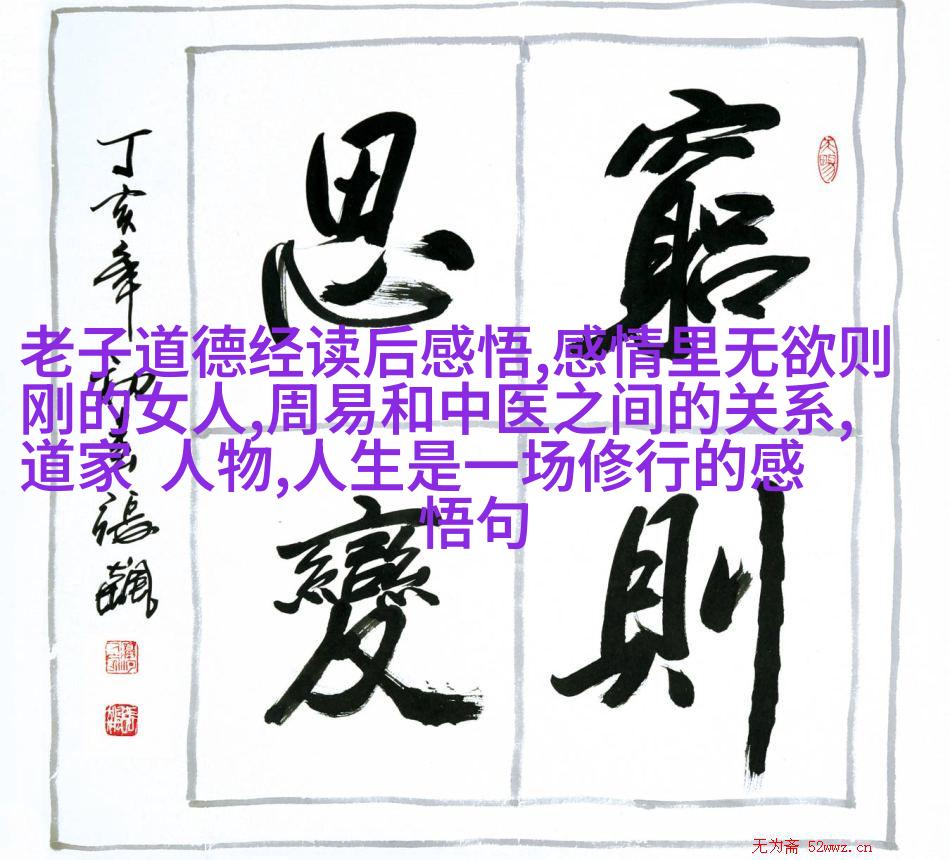 窮則
思變
丁亥年初春張飆
老子道德经读后感悟,感情里无欲则
刚的女人,周易和中医之间的关系,
道家 人物,人生是一场修行的感
悟句
无为斋 52wwz.cn